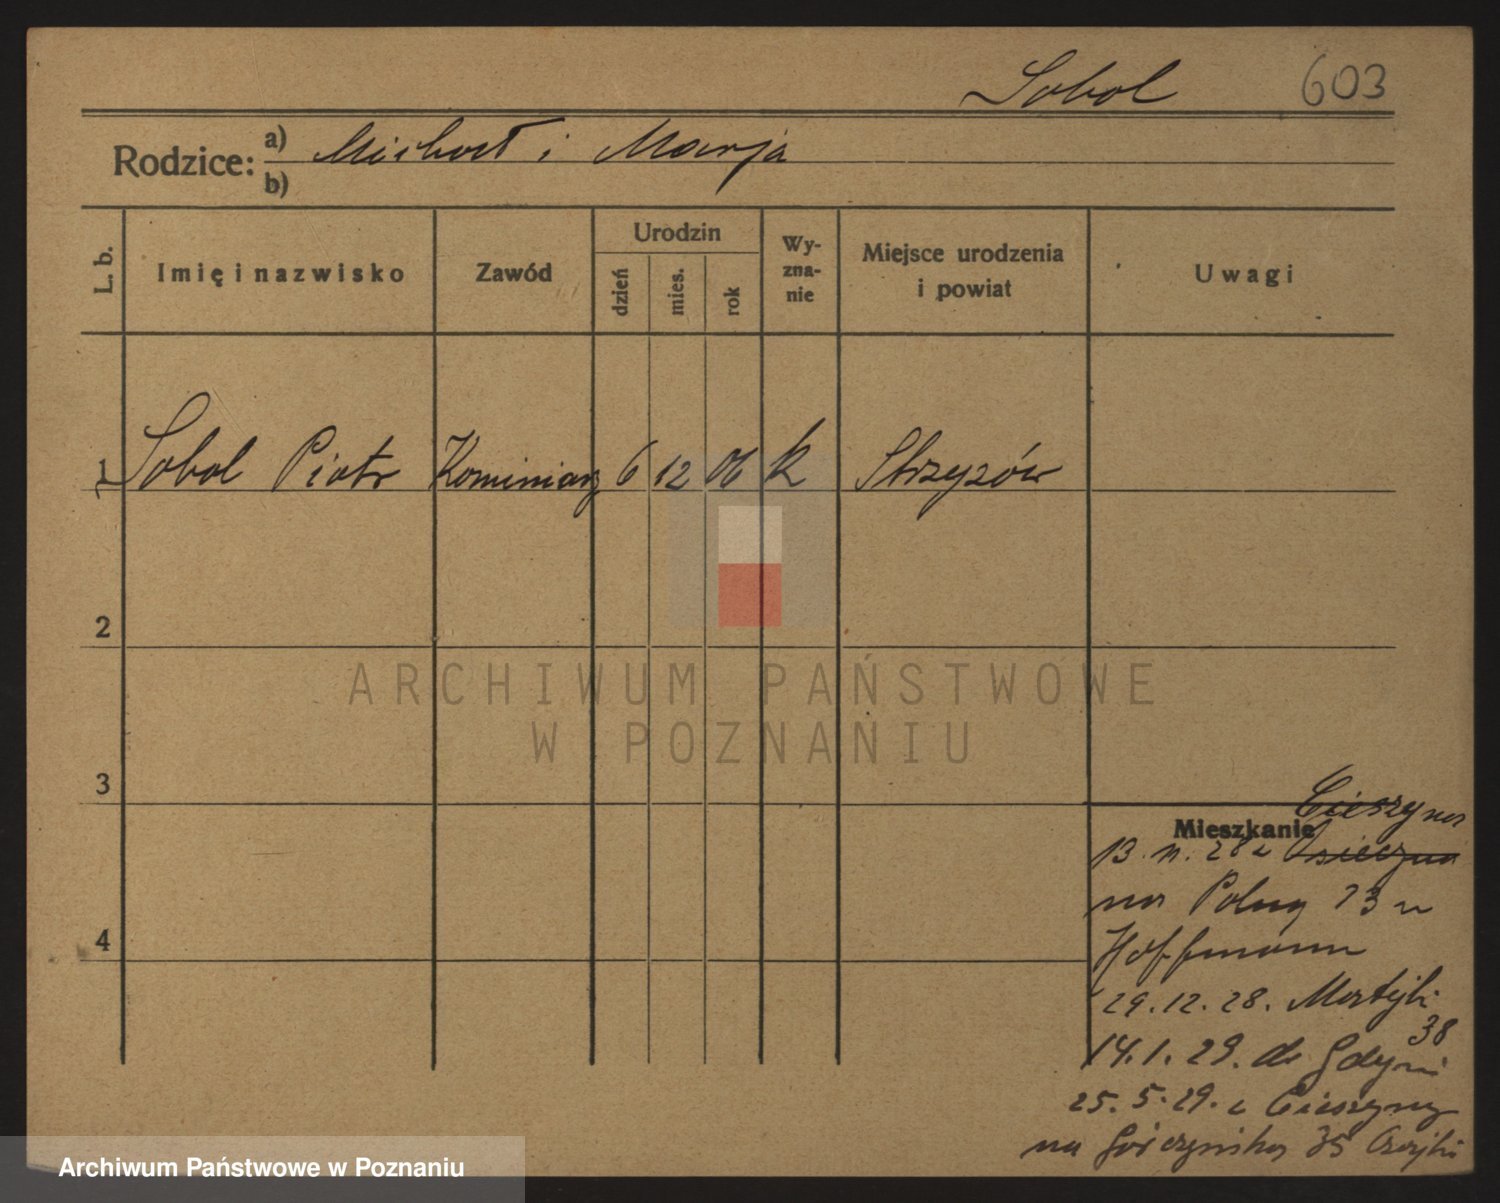 Sobol 603
Rodzice: a) Michał i Marja
b)
L. b. Imię i nazwisko Zawód Urodzin dzień mies. rok Wy-zna-nie Miejsce urodzenia i powiat Uwagi
1 Sobol Piotr Kominiarz 6 12 06 k Strzyzów
2
ARCHIWUM PAŃSTWOWE
W POZNANIU
3
Mieszkanie
13. 11. 28 z
na Polną 13 u
4
Hoffmann
29.12.28. Matejki
38
14.1.29. do Gdyni
25.5.29. z Cieszyny
na 35
Archiwum Państwowe w Poznaniu